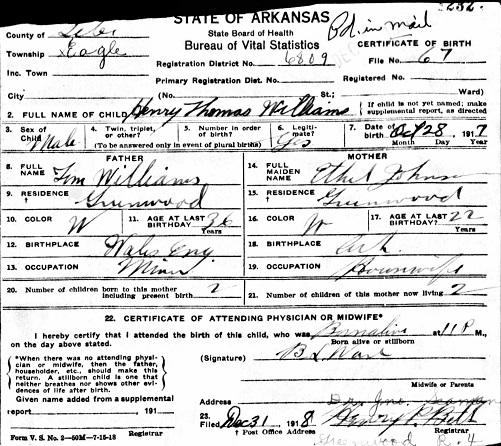 STATE OF ARKANSAS
State Board of Health
Bureau of Vital Statistics
Pd. in Mail
232.
County of Sebs
Township Eagle
Inc. Town
City
CERTIFICATE OF BIRTH
Registration District No. 6809
File No. 67
Primary Registration Dist. No.
Registered No.
(No. St.; Ward)
2. FULL NAME OF CHILD Henry Thomas Williams
If child is not yet named; make supplemental report, as directed
3. Sex of Child Male
4. Twin, triplet, or other?
5. Number in order of birth?
(To be answered only in event of plural births)
6. Legitimate? Yes
7. Date of birth Oct 28, 1917
Month Day Year
FATHER
8. FULL NAME Tom Williams
9. RESIDENCE Greenwood
10. COLOR W
11. AGE AT LAST BIRTHDAY 36
Years
12. BIRTHPLACE Wales Eng.
13. OCCUPATION Miner
MOTHER
14. FULL MAIDEN NAME Ethel Johnson
15. RESIDENCE Greenwood
16. COLOR W
17. AGE AT LAST BIRTHDAY 22
Years
18. BIRTHPLACE Ark
19. OCCUPATION Housewife
20. Number of children born to this mother including present birth 2
21. Number of children of this mother now living 2
22. CERTIFICATE OF ATTENDING PHYSICIAN OR MIDWIFE*
I hereby certify that I attended the birth of this child, who was Born alive at 11 P M.,
on the day above stated.
Born alive or stillborn
*When there was no attending physician or midwife, then the father, householder, etc., should make this return. A stillborn child is one that neither breathes nor shows other evidences of life after birth.
(Signature) B L Ware
Midwife or Parents
Given name added from a supplemental report 191
Registrar
Address
23. Filed Dec 31, 1918 Henry P. Bell
Registrar
† Post Office Address
Greenwood R. 4
Form V. S. No. 2—50M—7-15-18